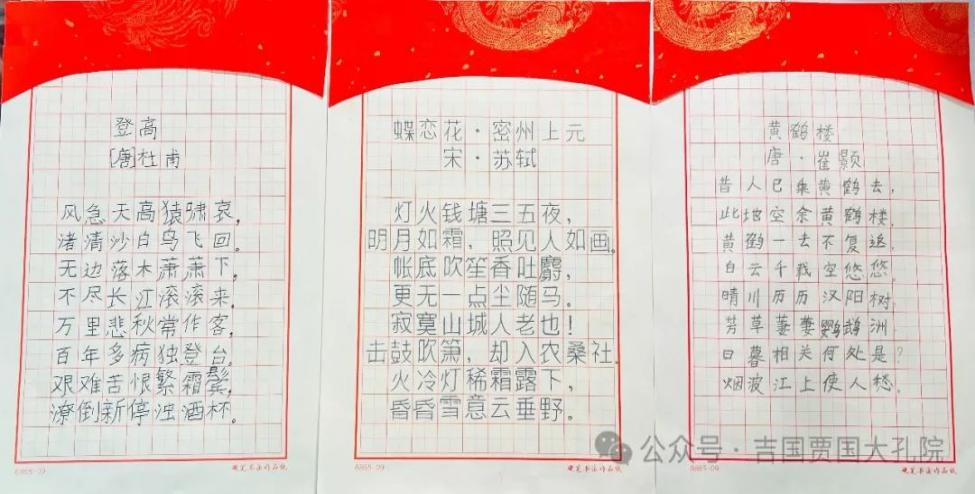 登高
[唐]杜甫
风急天高猿啸哀，
渚清沙白鸟飞回。
无边落木萧萧下，
不尽长江滚滚来。
万里悲秋常作客，
百年多病独登台。
艰难苦恨繁霜鬓，
潦倒新停浊酒杯。
6865-09
硬笔书法作品纸
蝶恋花·密州上元
宋·苏轼
灯火钱塘三五夜，
明月如霜，照见人如画。
帐底吹笙香吐麝，
更无一点尘随马。
寂寞山城人老也！
击鼓吹箫，却入农桑社。
火冷灯稀霜露下，
昏昏雪意云垂野。
6865-09
硬笔书法作品纸
黄鹤楼
唐·崔颢
昔人已乘黄鹤去，
此地空余黄鹤楼。
黄鹤一去不复返，
白云千载空悠悠。
晴川历历汉阳树，
芳草萋萋鹦鹉洲。
日暮相关何处是？
烟波江上使人愁。
6865-09
硬笔书法作品纸
公众号·吉国贾国大孔院